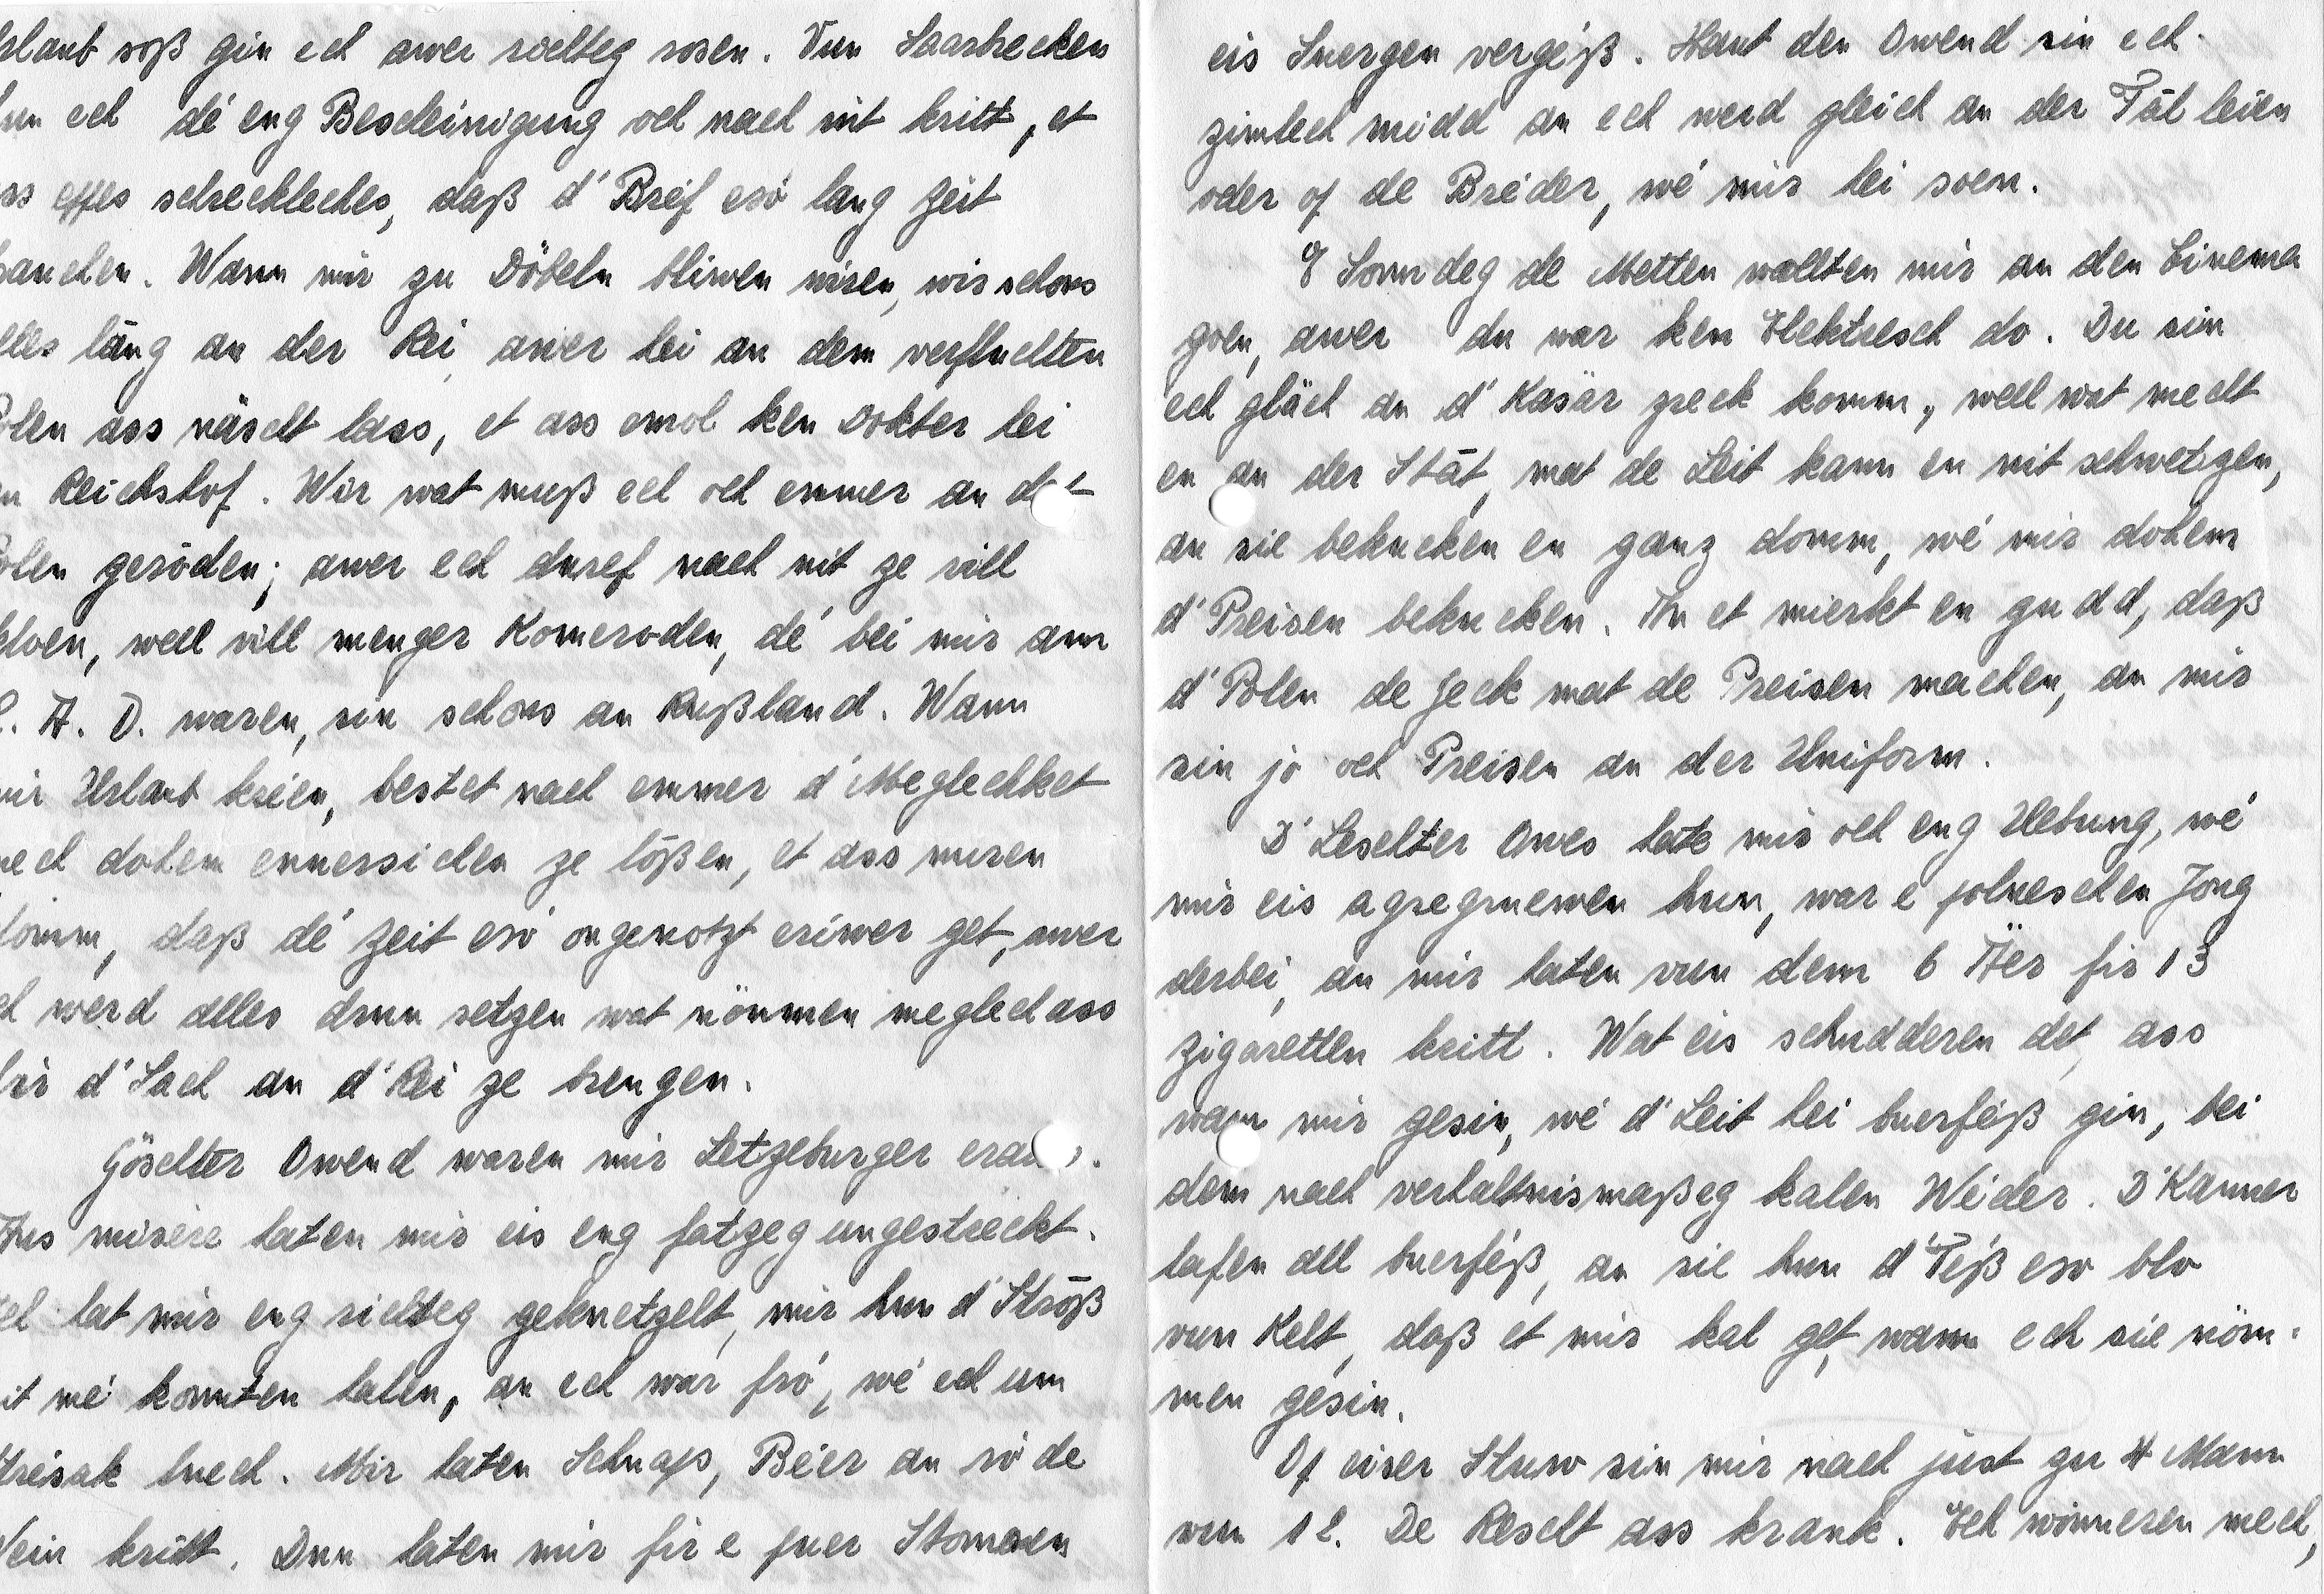 Urlaub soß gin ech awer richteg rosen. Vun Saarbrecken
hun ech dé eng Bescheinigung och nach nit kritt, et
ass eppes schreckleches, daß d'Bréf esó lang Zeit
brauchen. Wann mir zu Döbeln bliwen wiren, wir schons
alles läng an der Rei, awer hei an dem verfluchten
Polen ass näscht lass, et ass emol ken Dokter hei
an Reichshof. Wir wat muß ech och emmer an dat
Polen geröden; awer ech duref nach nit ze vill
kloen, well vill menger Komeroden, dé bei mir am
R. A. D. waren, sin schons an Rußland. Wann
mir Urlaub kréien, bestet nach emmer d'Meglechket
mech dohem ennersichen ze lößen, et ass nuren
domm, daß dé Zeit esó ongenotzt eriwer get, awer
ech werd alles drun setzen wat nömmen meglech ass
fir d'Sach an d'Rei ze brengen.
Göschter Owend waren mir Letzeburger eraus.
Aus misère haten mir eis eng fatzeg ungestreckt.
Ech hat mir eng richteg geknetzelt, mir hun d'Strôß
nit mé konnten halen, an ech war fró, wé ech um
Stréisak luech. Mir haten Schnaps, Béer an ró de
Wein kritt. Dun haten mir fir e puer Stonnen
eis Suergen vergéß. Haut den Owend sin ech
zimlech midd an ech werd gleich an der Fäl leien
oder op de Brieder, wé mir hei soen.
E Sonndeg de Metten wollten mir an den Cinema
goen, awer du war ken Elektresch do. Du sin
ech gläch an d'Kasär zreck komm, well wat mecht
en an der Stât, mat de Leit kann en nit schwetzen,
an sie bekucken en ganz domm, wé mir dohem
d'Preisen bekucken. An et mierkt en gudd, daß
d'Polen de Jeck mat de Preisen machen, an mir
sin jo och Preisen an der Uniform.
D'Leschter Owes hate mir och eng Uebung, wé
mir eis agregruewen hun, war e polneschen Jong
derbei, an mir haten vun dem 6 Äer fir 13
Zigaretten kritt. Wat eis schudderen det, ass
wann mir gesin, wé d'Leit hei buerféiß gin, bei
dem nach verhaltnismaßeg kalen Wéder. D'Kanner
lafen all buerféß, an sie hun d'Féß eso blo
vun Kelt, daß et mir kal get, wann ech sie nöm-
men gesin.
Op eiser Stuw sin mir nach just zu 4 Mann
vun 12. De Rescht ass krank. Ech wonneren mech,